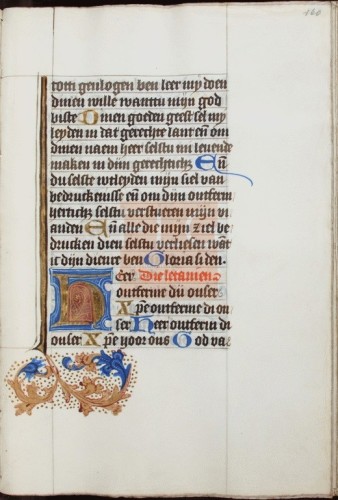 160
totti geulogen ben leer my doen
dinen wille wanttu mijn god
biste Dinen goeden geest sel my
leyden in dat gerechte lant en̄ om
dinen naem heer selstu mi leuende
maken in dijn gerechticheit En̄
du selste wtleyden mijn siel van
bedruckenisse en̄ om dijn ontferm
hertich selstu verstueren mijn vi
anden En̄ alle die mijn ziel be
drucken dien selstu verliesen wāt
ic dijn dienre ben Gloria si den.
Heer Die letanien
ontferme dij onser
Xp̄e ontferme di on
ser Heer ontferm di
onser Xp̄e hoor ons God va